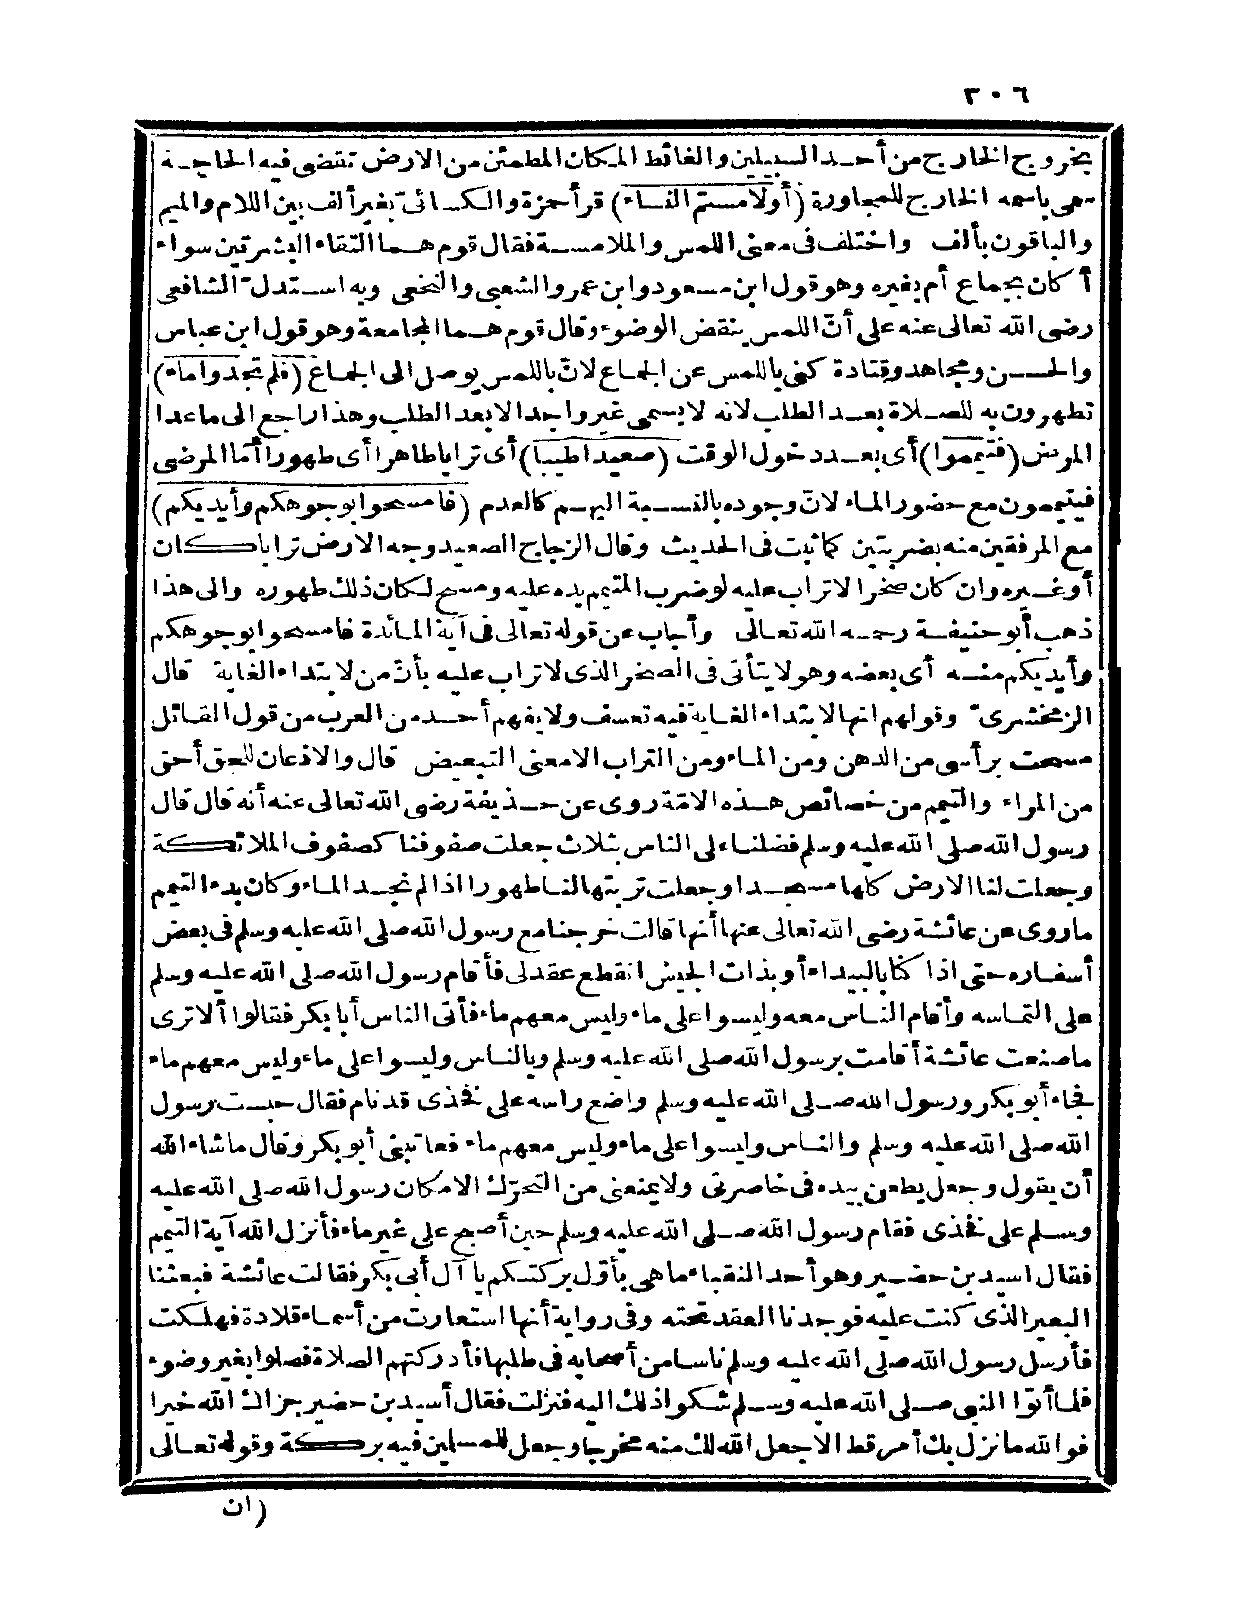 ٣٠٦
بخروج الخارج من أحد السبيلين والغائط المكان المطمئن من الارض تقضى فيه الحاجة
سمى باسمه الخارج للمجاورة (أولامستم النساء) قرأ حمزة والكسائىّ بغير ألف بين اللام والميم
والباقون بألف واختلف فى معنى اللمس والملامسة فقال قوم هما التقاء البشرتين سواء
أكان بجماع أم بغيره وهو قول ابن مسعود وابن عمر والشعبى والنخعى وبه استدل الشافعى
رضى الله تعالى عنه على أنّ اللمس ينقض الوضوء وقال قوم هما المجامعة وهو قول ابن عباس
والحسن ومجاهد وقتادة كنى باللمس عن الجماع لانّ باللمس يوصل الى الجماع (فلم تجدوا ماء)
تطهرون به للصلاة بعد الطلب لانه لا يسمى غير واجد الا بعد الطلب وهذا راجع الى ماعدا
المرض (فتيمموا) أى بعد دخول الوقت (صعيدا طيبا) أى ترابا طاهرا أى طهورا أمّا المرضى
فيتيممون مع حضور الماء لانّ وجوده بالنسبة اليهم كالعدم (فامسحوا بوجوهكم وأيديكم)
مع المرفقين منه بضربتين كما ثبت فى الحديث وقال الزجاج الصعيد وجه الارض ترابا كان
أو غيره وان كان صخرا لا تراب عليه لو ضرب المتيمم يده عليه ومسح لكان ذلك طهوره والى هذا
ذهب أبو حنيفة رحمه الله تعالى وأجاب عن قوله تعالى فى آية المائدة فامسحوا بوجوهكم
وأيديكم منه أى بعضه وهو لا يتأتى فى الصخر الذى لا تراب عليه بأنّ من لابتداء الغاية قال
الزمخشرىّ وقولهم انها لابتداء الغاية فيه تعسف ولا يفهم أحد من العرب من قول القائل
مسحت برأسى من الدهن ومن الماء ومن التراب الا معنى التبعيض قال والاذعان للحق أحق
من المراء والتيمم من خصائص هذه الامّة روى عن حذيفة رضى الله تعالى عنه أنه قال قال
رسول الله صلى الله عليه وسلم فضلنا على الناس بثلاث جعلت صفوفنا كصفوف الملائكة
وجعلت لنا الارض كلها مسجدا وجعلت تربتها لنا طهورا اذا لم نجد الماء وكان بدء التيمم
ماروى عن عائشة رضى الله تعالى عنها أنها قالت خرجنا مع رسول الله صلى الله عليه وسلم فى بعض
أسفاره حتى اذا كنا بالبيداء أو بذات الجيش انقطع عقد لى فأقام رسول الله صلى الله عليه وسلم
على التماسه وأقام الناس معه وليسوا على ماء وليس معهم ماء فأتى الناس أبا بكر فقالوا ألا ترى
ماصنعت عائشة أقامت برسول الله صلى الله عليه وسلم وبالناس وليسوا على ماء وليس معهم ماء
فجاء أبو بكر ورسول الله صلى الله عليه وسلم واضع رأسه على فخذى قد نام فقال حبست رسول
الله صلى الله عليه وسلم والناس وليسوا على ماء وليس معهم ماء فعاتبنى أبو بكر وقال ماشاء الله
أن يقول وجعل يطعن بيده فى خاصرتى ولا يمنعنى من التحرّك الا مكان رسول الله صلى الله عليه
وسلم على فخذى فقام رسول الله صلى الله عليه وسلم حين أصبح على غير ماء فأنزل الله آية التيمم
فقال اسيد بن حضير وهو أحد النقباء ماهى بأوّل بركتكم يا آل أبى بكر فقالت عائشة فبعثنا
البعير الذى كنت عليه فوجدنا العقد تحته وفى رواية أنها استعارت من أسماء قلادة فهلكت
فأرسل رسول الله صلى الله عليه وسلم ناسا من أصحابه فى طلبها فأدركتهم الصلاة فصلوا بغير وضوء
فلما أتوا النبى صلى الله عليه وسلم شكوا ذلك اليه فنزلت فقال أسيد بن حضير جزاك الله خيرا
فوالله مانزل بك أمر قط الا جعل الله لك منه مخرجا وجعل للمسلمين فيه بركة وقوله تعالى
(ان